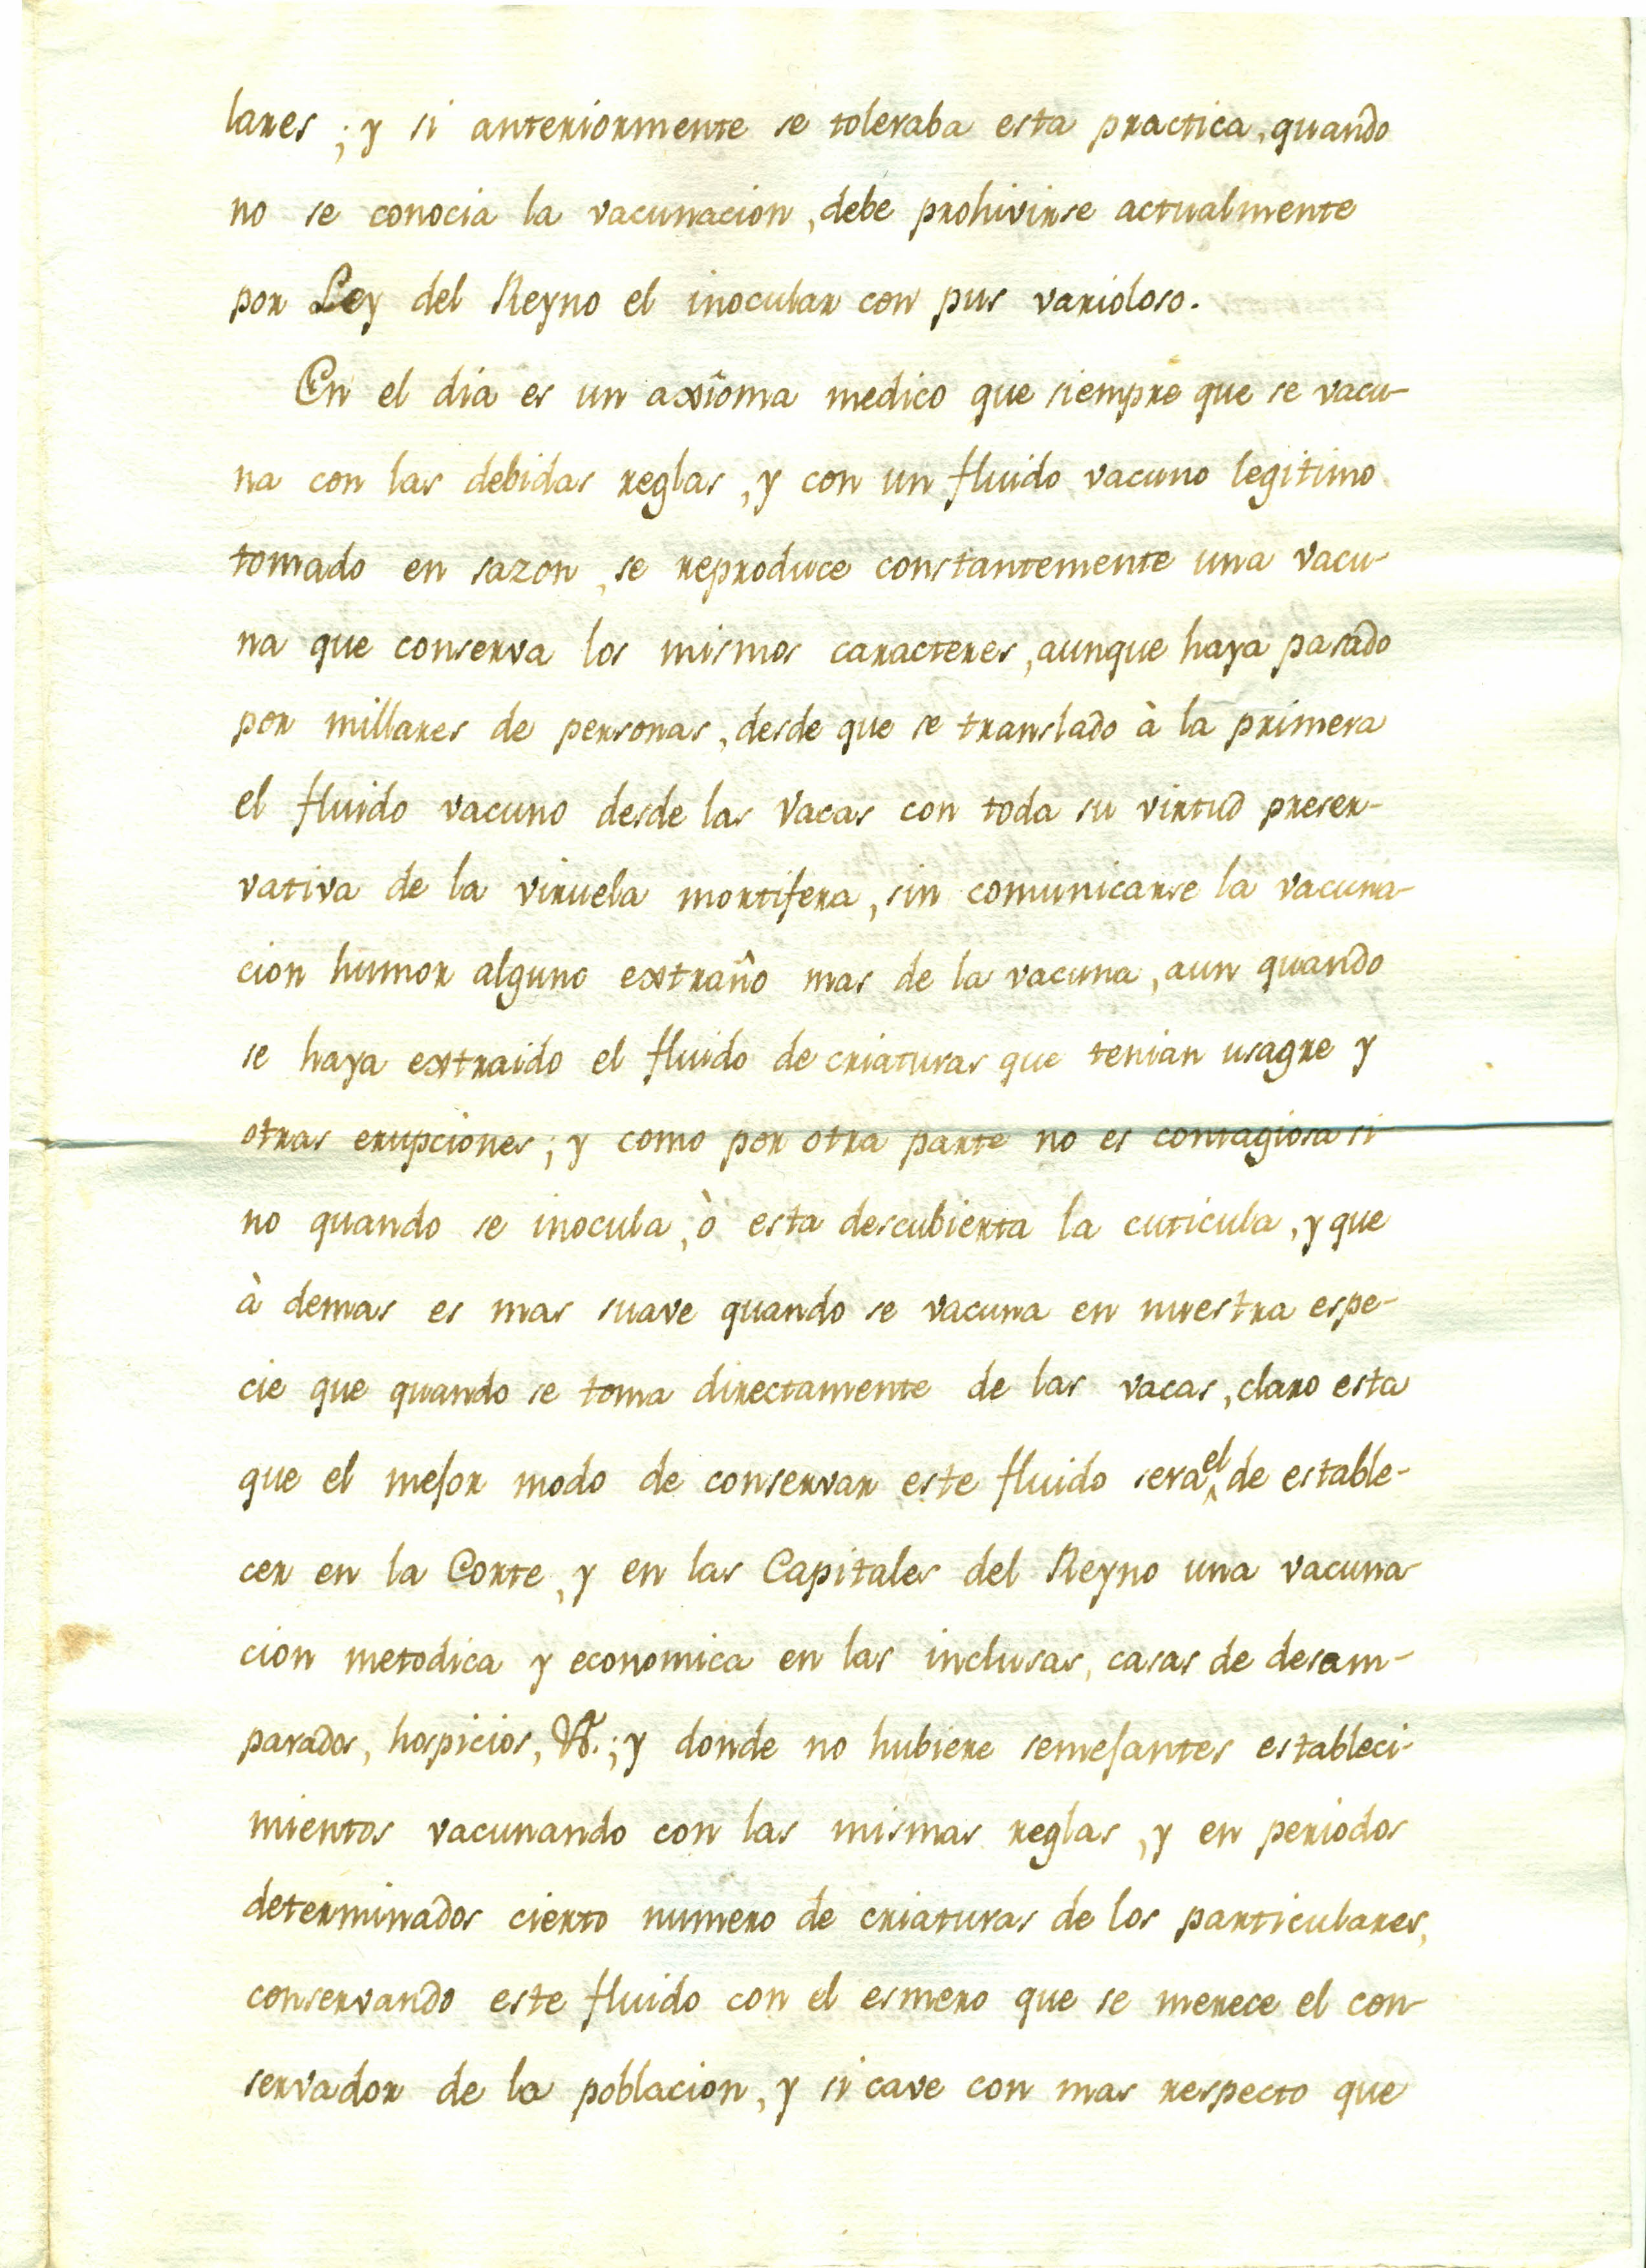 lares; y si anteriormente se toleraba esta practica, quando
no se conocia la vacunacion, debe prohivirse actualmente
por Ley del Reyno el inocular con pus varioloso.
En el dia es un axîoma medico que siempre que se vacu-
na con las debidas reglas, y con un fluido vacuno legitimo
tomado en sazon, se reproduce constantemente una vacu-
na que conserva los mismos caracteres, aunque haya pasado
por millares de personas, desde que se translado à la primera
el fluido vacuno desde las Vacas con toda su virtud preser-
vativa de la viruela mortifera, sin comunicarse la vacuna-
cion humor alguno extraño mas de la vacuna, aun quando
se haya extraido el fluido de criaturas que tenian usagre y
otras erupciones; y como por otra parte no es contagiosa si
no quando se inocula, ò esta descubierta la cuticula, y que
à demas es mas suave quando se vacuna en nuestra espe-
cie que quando se toma directamente de las vacas, claro esta
que el mejor modo de conservar este fluido sera el de estable-
cer en la Corte, y en las Capitales del Reyno una vacuna-
cion metodica y economica en las inclusas, casas de desam-
parados, hospicios, &ª.; y donde no hubiere semejantes estableci-
mientos vacunando con las mismas reglas, y en periodos
determinados cierto numero de criaturas de los particulares,
conservando este fluido con el esmero que se merece el con-
servador de la poblacion, y si cave con mas respecto que